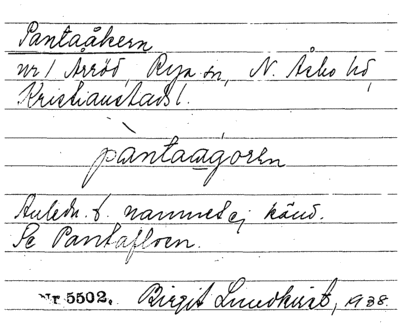 Pantaåkern
nr 1 Arröd, Rya sn, N. Åsbo hd,
Kristianstads l.
pàntaagoren
Anledn. t. namnet ej känd.
Se Pantafloen.
Nr 5502. Birgit Lundkvist, 1938.